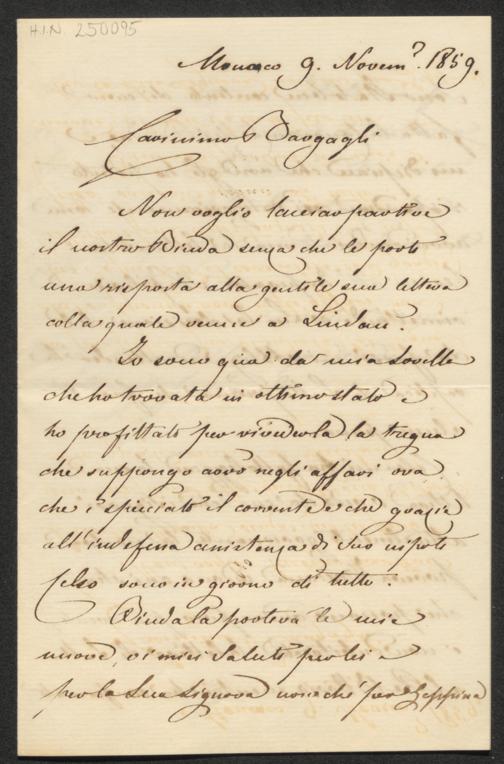 H.I.N. 250095
Monaco 9. Novem? 1859.
Carissimo Bargagli
Non voglio lasciar partire
il nostro Binda senza che le porti
una risposta alla gentile sua lettera
colla quale venne a Lindau.
Io sono qua da mia sorella
che ho trovata in ottimo stato e
ho profittato per rivederla la tregua
che suppongo avrò negli affari ora
che è spicciato il corrente e che grazie
all'indefessa assistenza di Suo nipote
Celso sono in giorno di tutto.
Binda la porterà le mie
nuove, i miei saluti per lei e
per la Sua Signora nonchè per Geppina